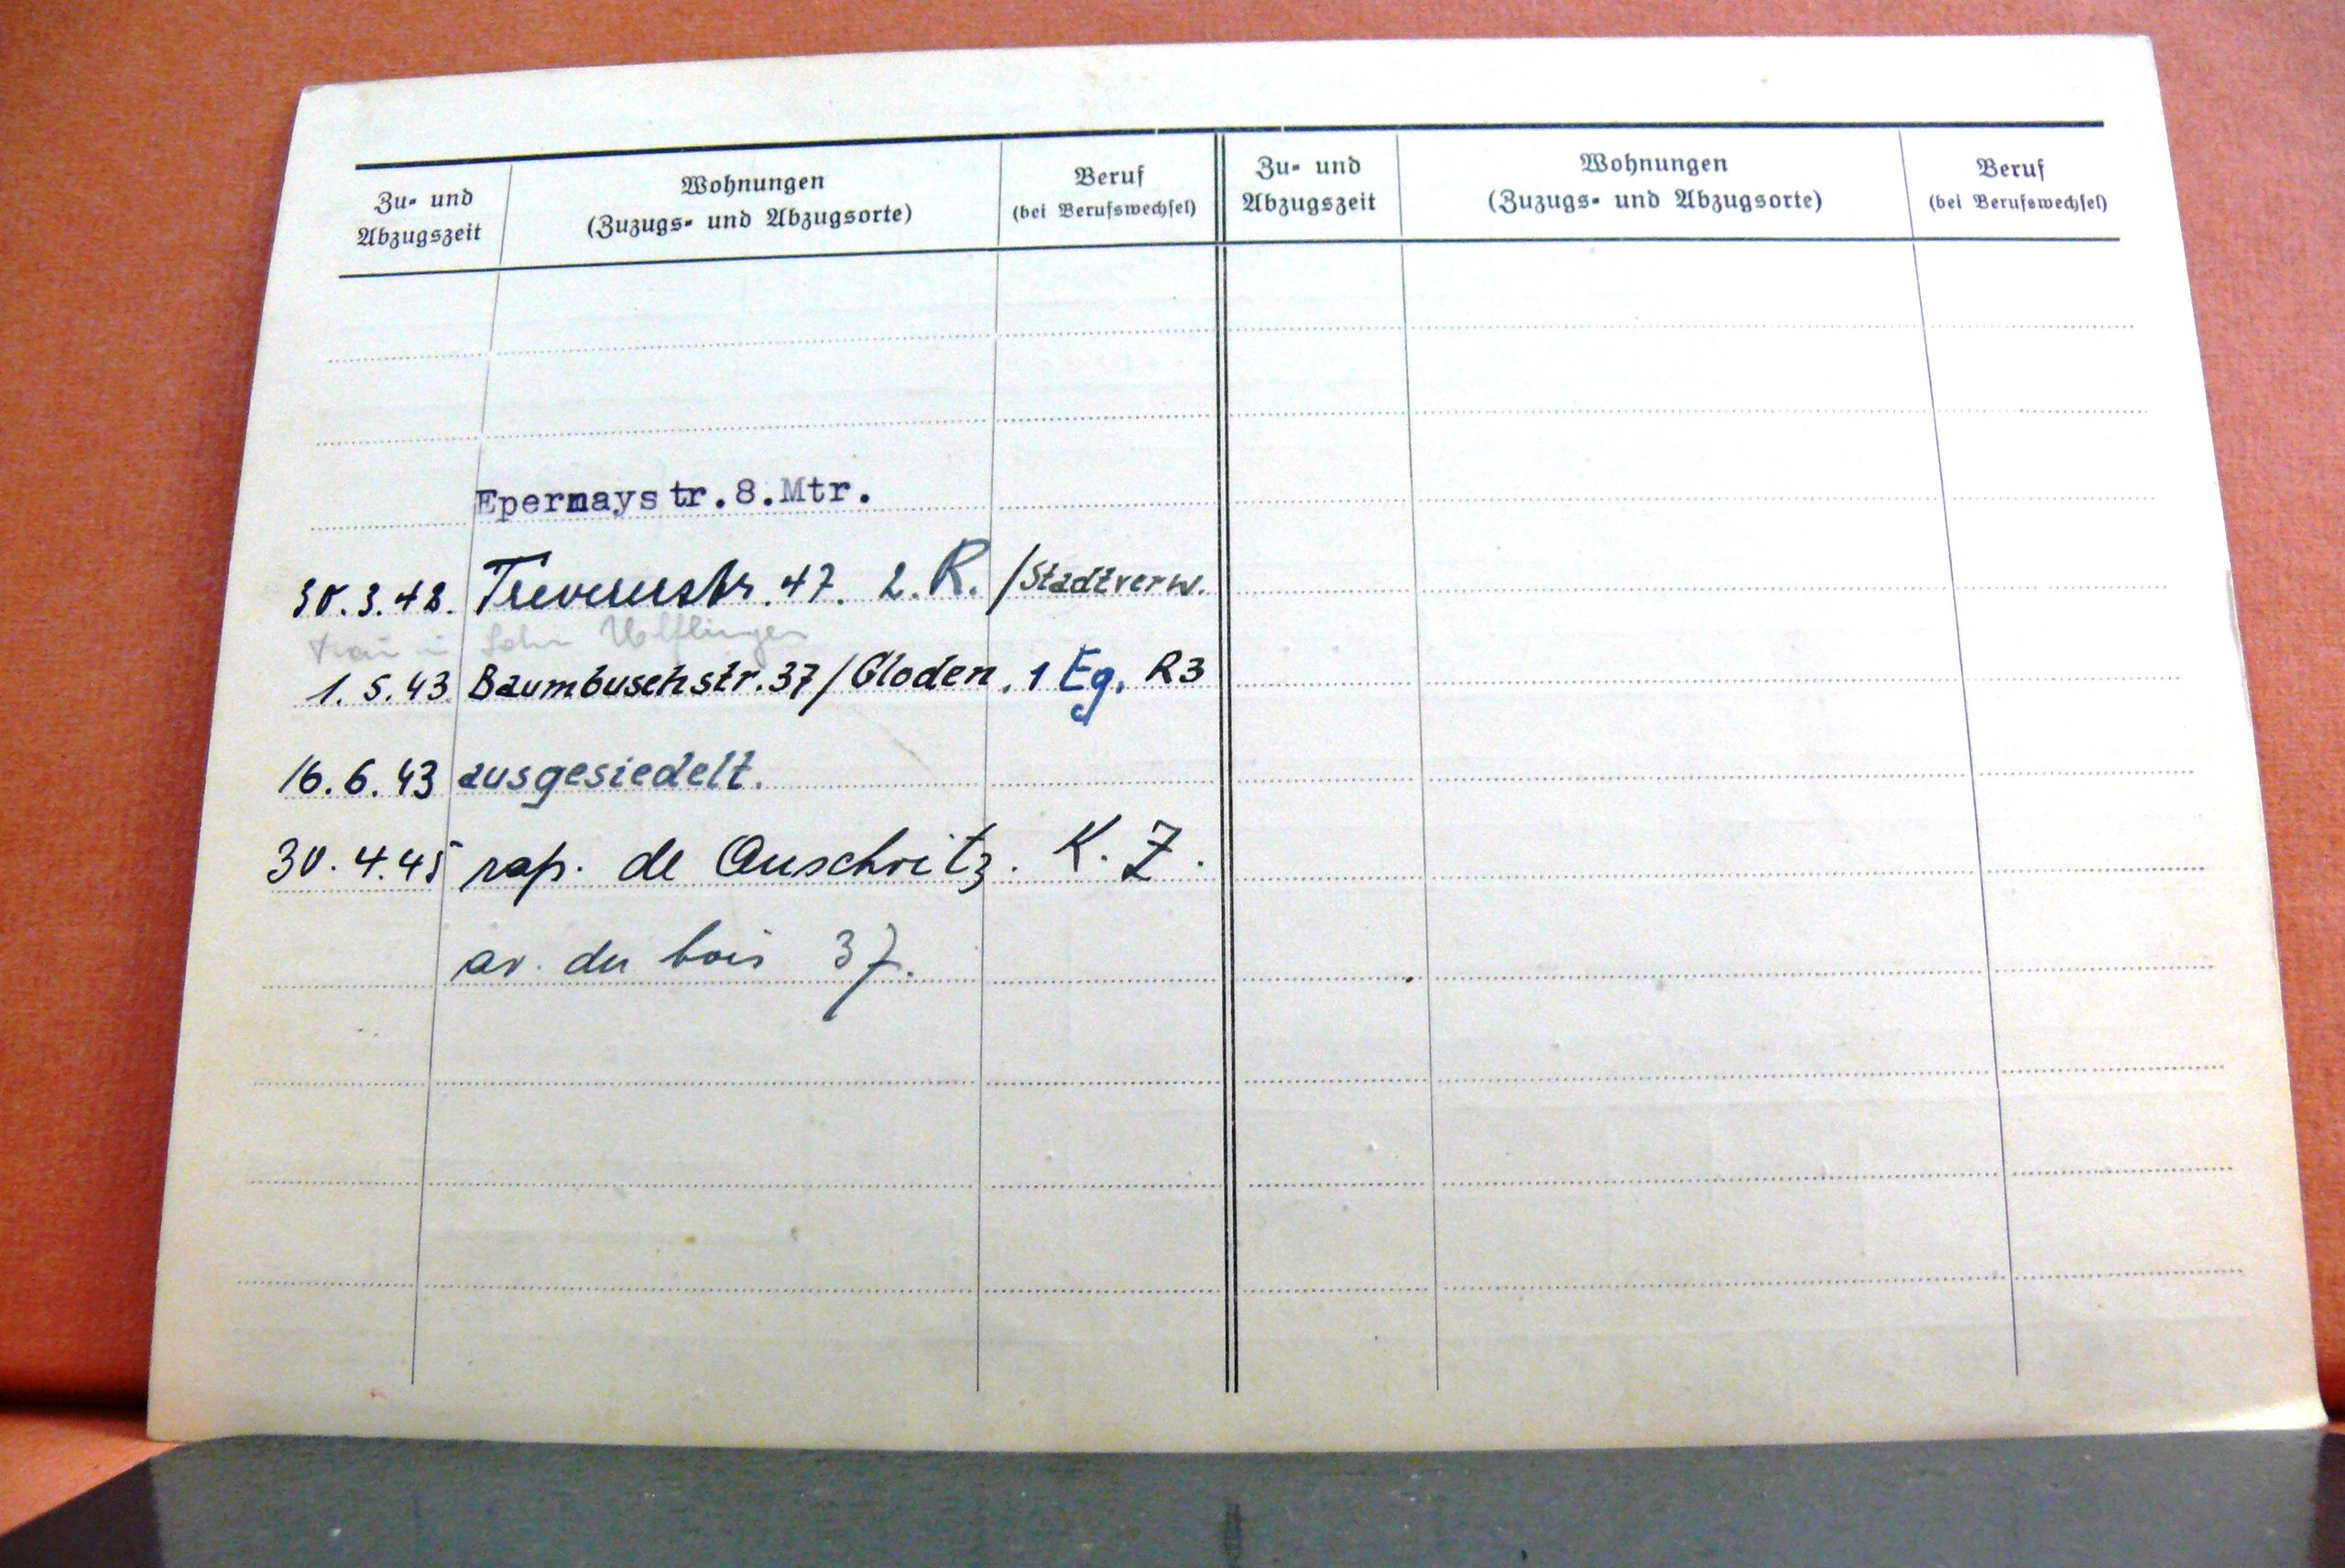 Zu- und
Abzugszeit
Wohnungen
(Zuzugs- und Abzugsorte)
Beruf
(bei Berufswechsel)
Zu- und
Abzugszeit
Wohnungen
(Zuzugs- und Abzugsorte)
Beruf
(bei Berufswechsel)
Epernaystr.8.Mtr.
30.3.42. Trevererstr. 47. 2. R. /Stadtverw.
Sohn Ulflingen
1.5.43 Baumbuschstr.37/Gloden. 1 Eg. R3
16.6.43 ausgesiedelt.
30.4.45 rap. de Auschwitz. K. Z.
av. du bois 37.